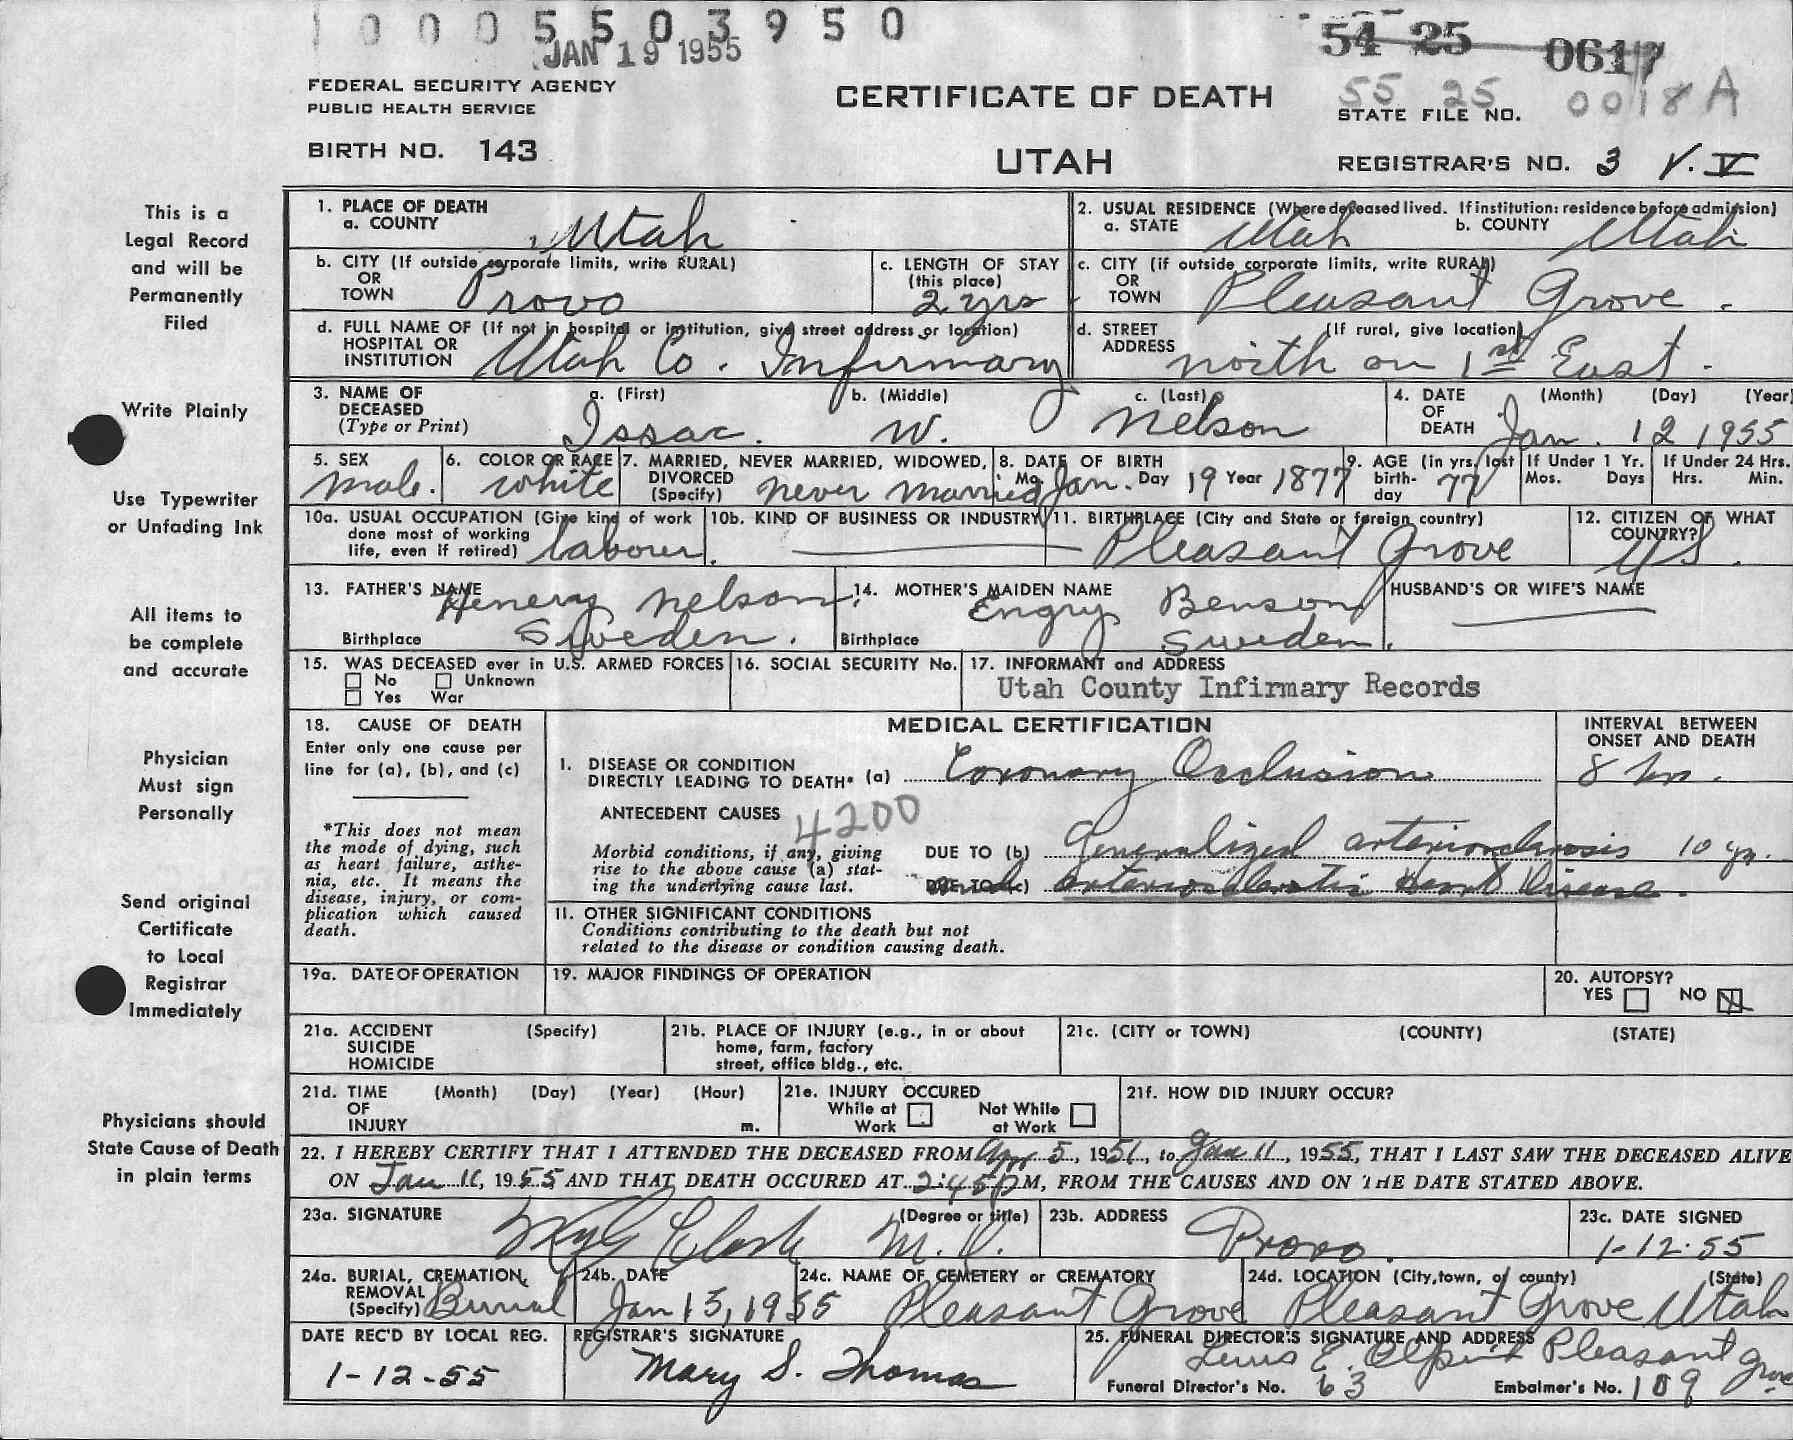 1 0 0 0 5 5 0 3 9 5 0
JAN 19 1955
54 25 0617
55 25 0018 A
FEDERAL SECURITY AGENCY
PUBLIC HEALTH SERVICE
BIRTH NO. 143
CERTIFICATE OF DEATH
UTAH
STATE FILE NO.
REGISTRAR'S NO. 3 V. V
This is a
Legal Record
and will be
Permanently
Filed
Write Plainly
Use Typewriter
or Unfading Ink
All items to
be complete
and accurate
Physician
Must sign
Personally
Send original
Certificate
to Local
Registrar
Immediately
Physicians should
State Cause of Death
in plain terms
1. PLACE OF DEATH
a. COUNTY Utah
2. USUAL RESIDENCE (Where deceased lived. If institution: residence before admission)
a. STATE Utah b. COUNTY Utah
b. CITY (If outside corporate limits, write RURAL)
OR
TOWN Provo
c. LENGTH OF STAY
(this place)
2 yrs
c. CITY (if outside corporate limits, write RURAL)
OR
TOWN Pleasant Grove.
d. FULL NAME OF (If not in hospital or institution, give street address or location)
HOSPITAL OR
INSTITUTION Utah Co. Infirmary
d. STREET (If rural, give location)
ADDRESS north on 1st East.
3. NAME OF
DECEASED
(Type or Print)
a. (First) b. (Middle) c. (Last)
Issac. W. Nelson
4. DATE (Month) (Day) (Year)
OF
DEATH Jan. 12 1955
5. SEX
male.
6. COLOR OR RACE
white
7. MARRIED, NEVER MARRIED, WIDOWED,
DIVORCED
(Specify) never married
8. DATE OF BIRTH
Mo. Jan. Day 19 Year 1877
9. AGE (in yrs. last
birth-
day 77
If Under 1 Yr.
Mos. Days
If Under 24 Hrs.
Hrs. Min.
10a. USUAL OCCUPATION (Give kind of work
done most of working
life, even if retired) labour.
10b. KIND OF BUSINESS OR INDUSTRY
11. BIRTHPLACE (City and State or foreign country)
Pleasant Grove
12. CITIZEN OF WHAT
COUNTRY?
US.
13. FATHER'S NAME Henery Nelson
Birthplace Sweden.
14. MOTHER'S MAIDEN NAME
Engry Benson
Birthplace Sweden.
HUSBAND'S OR WIFE'S NAME
15. WAS DECEASED ever in U.S. ARMED FORCES
No Unknown
Yes War
16. SOCIAL SECURITY No.
17. INFORMANT and ADDRESS
Utah County Infirmary Records
18. CAUSE OF DEATH
Enter only one cause per
line for (a), (b), and (c)
*This does not mean
the mode of dying, such
as heart failure, asthe-
nia, etc. It means the
disease, injury, or com-
plication which caused
death.
MEDICAL CERTIFICATION
INTERVAL BETWEEN
ONSET AND DEATH
I. DISEASE OR CONDITION
DIRECTLY LEADING TO DEATH* (a) Coronary Occlusion 8 hrs.
ANTECEDENT CAUSES 4200
Morbid conditions, if any, giving
rise to the above cause (a) stat-
ing the underlying cause last.
DUE TO (b) Generalized arteriosclerosis 10 yr.
DUE TO (c) and arteriosclerotic Heart Disease.
II. OTHER SIGNIFICANT CONDITIONS
Conditions contributing to the death but not
related to the disease or condition causing death.
19a. DATE OF OPERATION
19. MAJOR FINDINGS OF OPERATION
20. AUTOPSY?
YES NO X
21a. ACCIDENT (Specify)
SUICIDE
HOMICIDE
21b. PLACE OF INJURY (e.g., in or about
home, farm, factory
street, office bldg., etc.
21c. (CITY or TOWN) (COUNTY) (STATE)
21d. TIME (Month) (Day) (Year) (Hour)
OF
INJURY m.
21e. INJURY OCCURED
While at Not While
Work at Work
21f. HOW DID INJURY OCCUR?
22. I HEREBY CERTIFY THAT I ATTENDED THE DECEASED FROM Apr 5, 1951, to Jan 11, 1955, THAT I LAST SAW THE DECEASED ALIVE
ON Jan 11, 1955 AND THAT DEATH OCCURED AT 2:45 PM, FROM THE CAUSES AND ON THE DATE STATED ABOVE.
23a. SIGNATURE (Degree or title)
Clark M. D.
23b. ADDRESS
Provo.
23c. DATE SIGNED
1-12-55
24a. BURIAL, CREMATION,
REMOVAL
(Specify) Burial
24b. DATE
Jan 15, 1955
24c. NAME OF CEMETERY or CREMATORY
Pleasant Grove
24d. LOCATION (City, town, or county) (State)
Pleasant Grove Utah
DATE REC'D BY LOCAL REG.
1-12-55
REGISTRAR'S SIGNATURE
Mary S. Thomas
25. FUNERAL DIRECTOR'S SIGNATURE AND ADDRESS
E. Pleasant Grove
Funeral Director's No. 63 Embalmer's No. 189